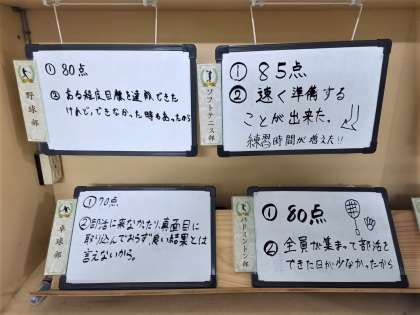 野球部
① 80点
② ある程度目標を達成できた
けれど、できなかった時もあったから
ソフトテニス部
① 85点
② 速く準備する
ことが出来た。
練習時間が増えた!!
卓球部
① 70点
②部活に来なかったり、真面目に
取り込んでおらず良い結果とは
言えないから。
バドミントン部
① 80点
② 全員が集まって部活を
できた日が少なかったから